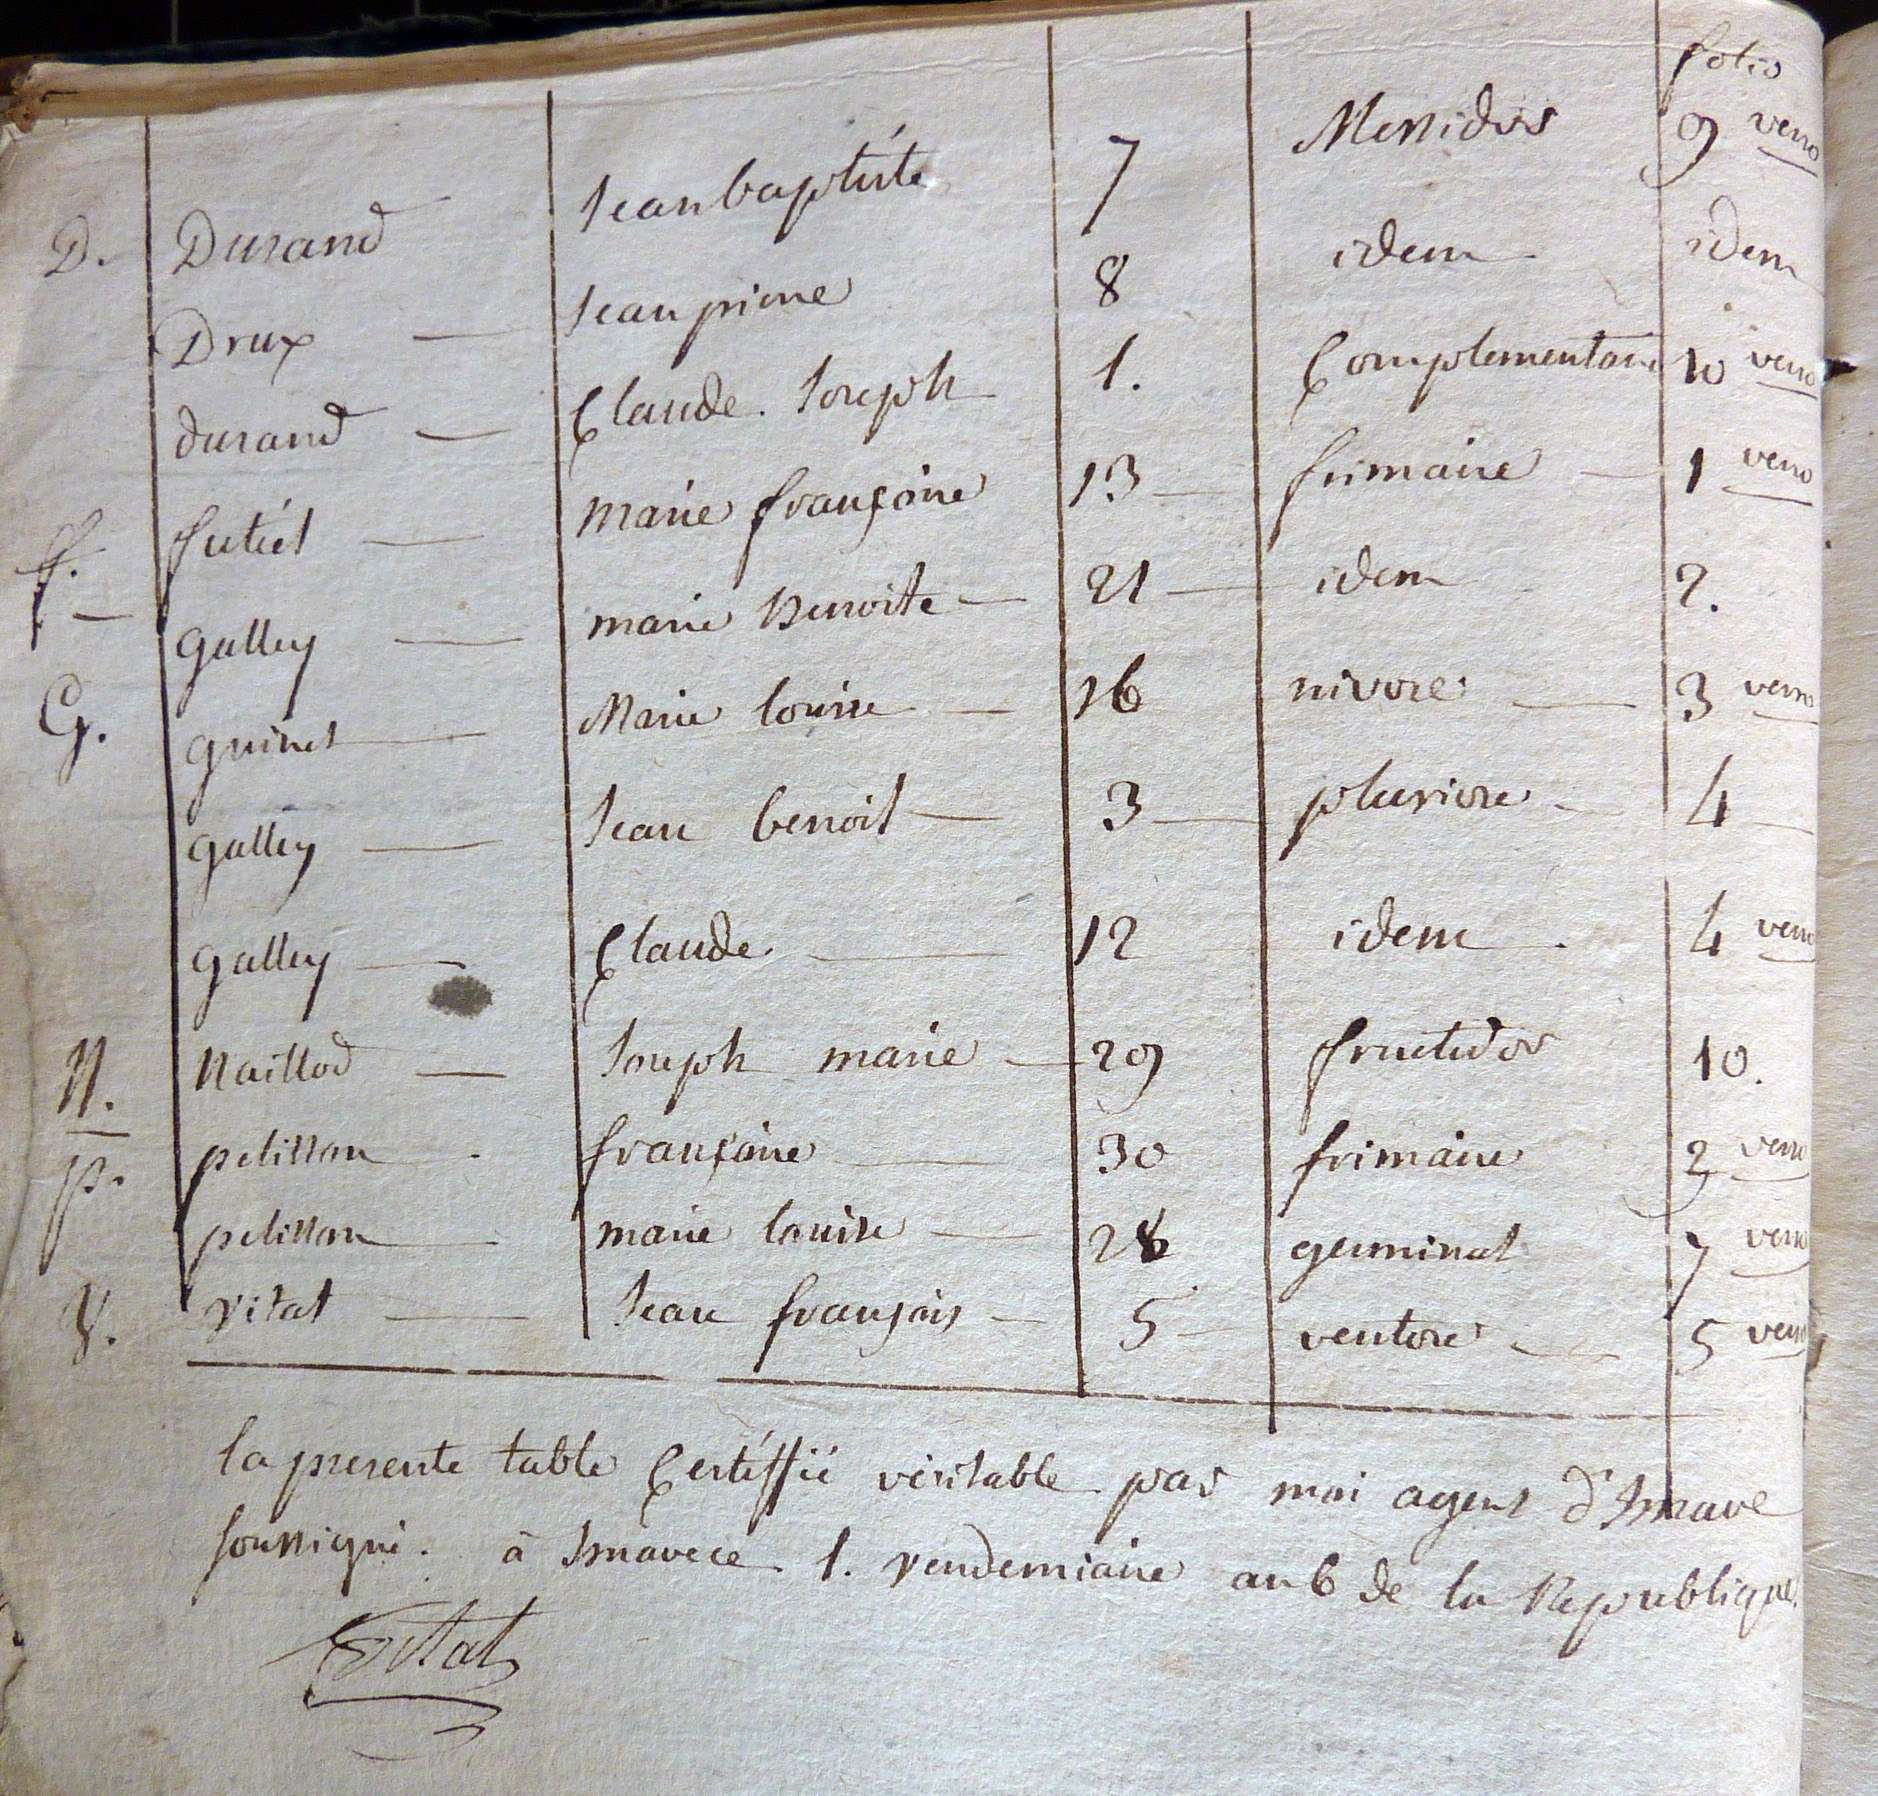 folio
D. Durand Jean baptiste 7 Messidor 9 verso
Drux — Jean pierre 8 idem idem
durand — Claude Joseph 1. Complementaire 10 verso
f. futiét — marie françoise 13 — frimaire — 1 verso
galley — marie Benoite — 21 — idem 2.
G. guinet — Marie louise — 16 nivose — 3 verso
galley — Jean benoit — 3 — pluviose — 4 —
galley — Claude — 12 idem 4 verso
N. Naillod — Joseph marie — 29 fructidor 10.
p. pelisson françoise — 30 frimaire 2 verso
pelisson — marie louise — 28 germinal 7 verso
V. vitat — Jean françois — 5 — ventose — 5 verso
la presente table Certiffié véritable par moi agent
soussigné. à 1. vendemiaire an 6 de la Republique.
Vitat